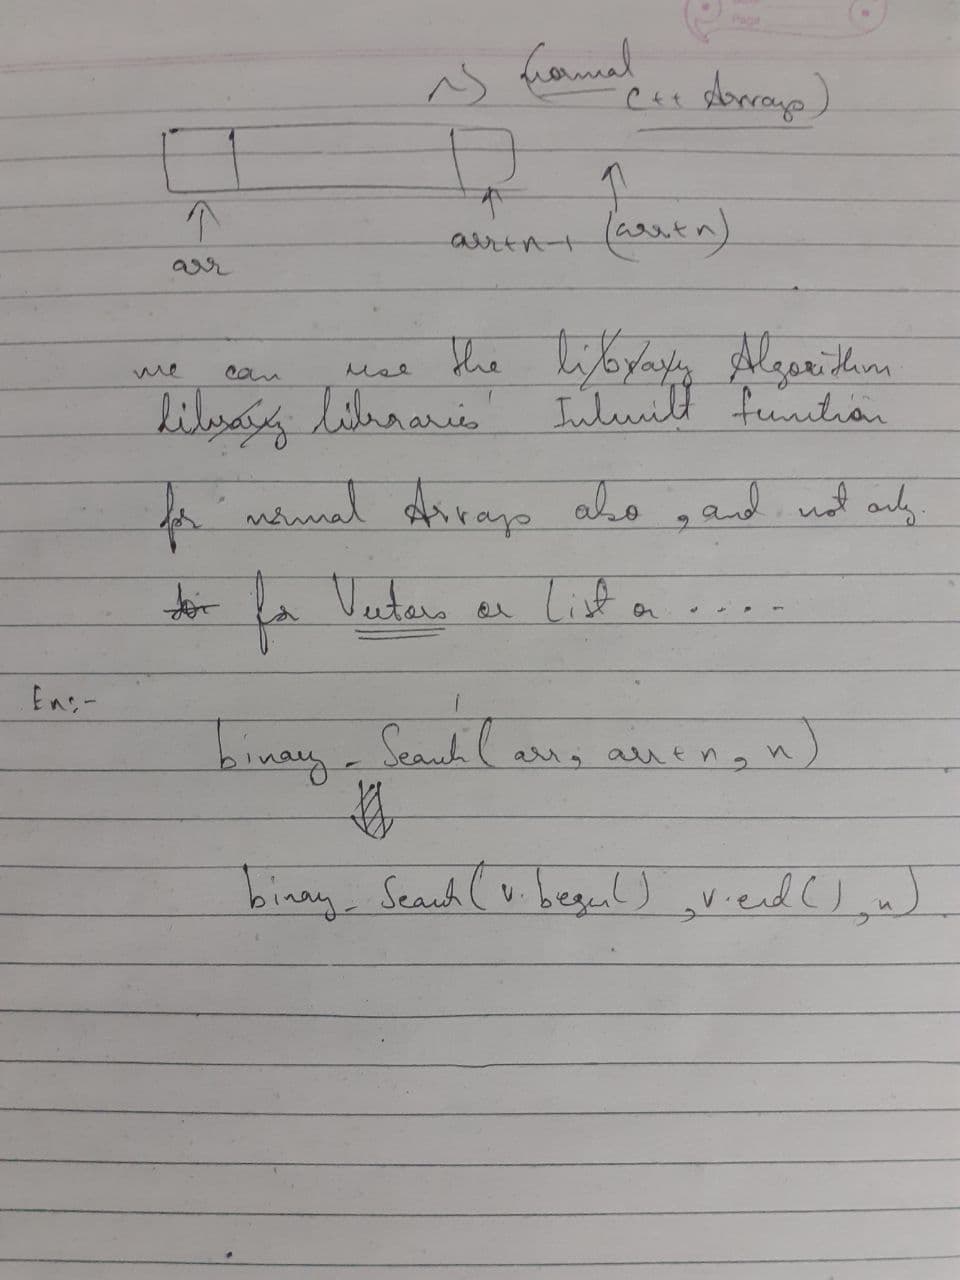 Page
(normal
C++ Arrays)
arr
arr+n-1
(arr+n)
we can use the library Algorithm
library libraries' Inbuilt function
for normal Arrays also , and not only
for for Vectors or List or ....
Ex:-
binary_Search( arr, arr+n, n)
binary_Search( v.begin() , v.end() , n)